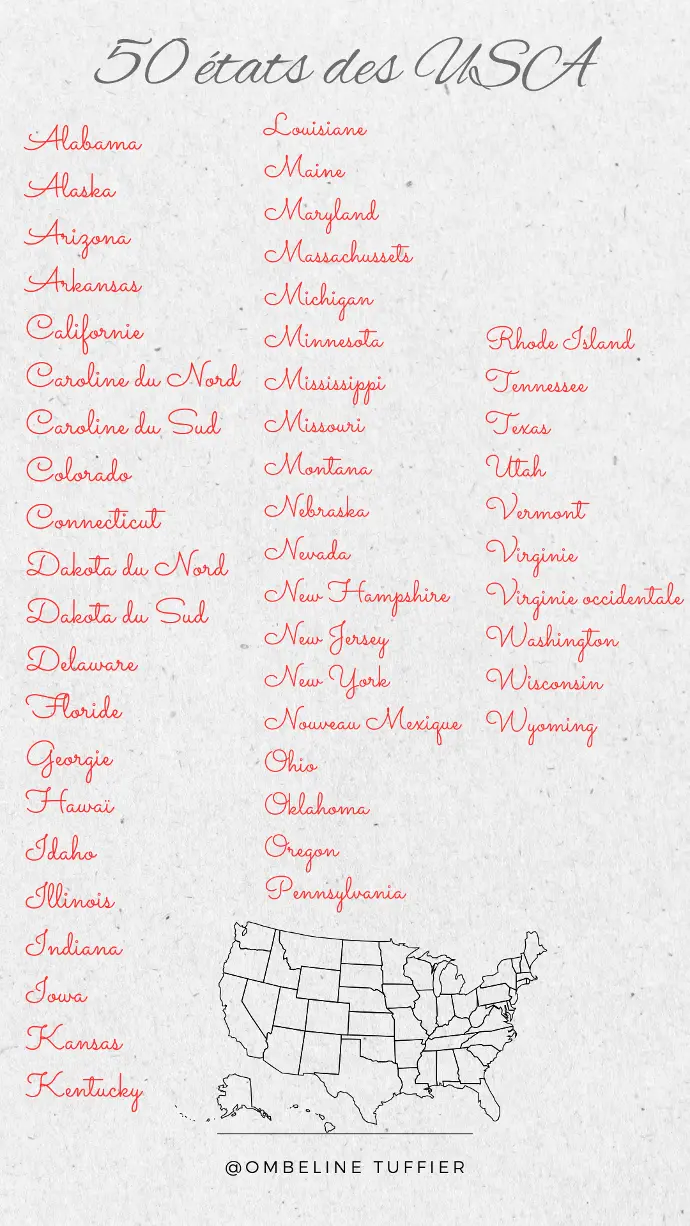 50 états des USA
Alabama
Alaska
Arizona
Arkansas
Californie
Caroline du Nord
Caroline du Sud
Colorado
Connecticut
Dakota du Nord
Dakota du Sud
Delaware
Floride
Georgie
Hawaï
Idaho
Illinois
Indiana
Iowa
Kansas
Kentucky
Louisiane
Maine
Maryland
Massachussets
Michigan
Minnesota
Mississippi
Missouri
Montana
Nebraska
Nevada
New Hampshire
New Jersey
New York
Nouveau Mexique
Ohio
Oklahoma
Oregon
Pennsylvania
Rhode Island
Tennessee
Texas
Utah
Vermont
Virginie
Virginie occidentale
Washington
Wisconsin
Wyoming
@OMBELINE TUFFIER